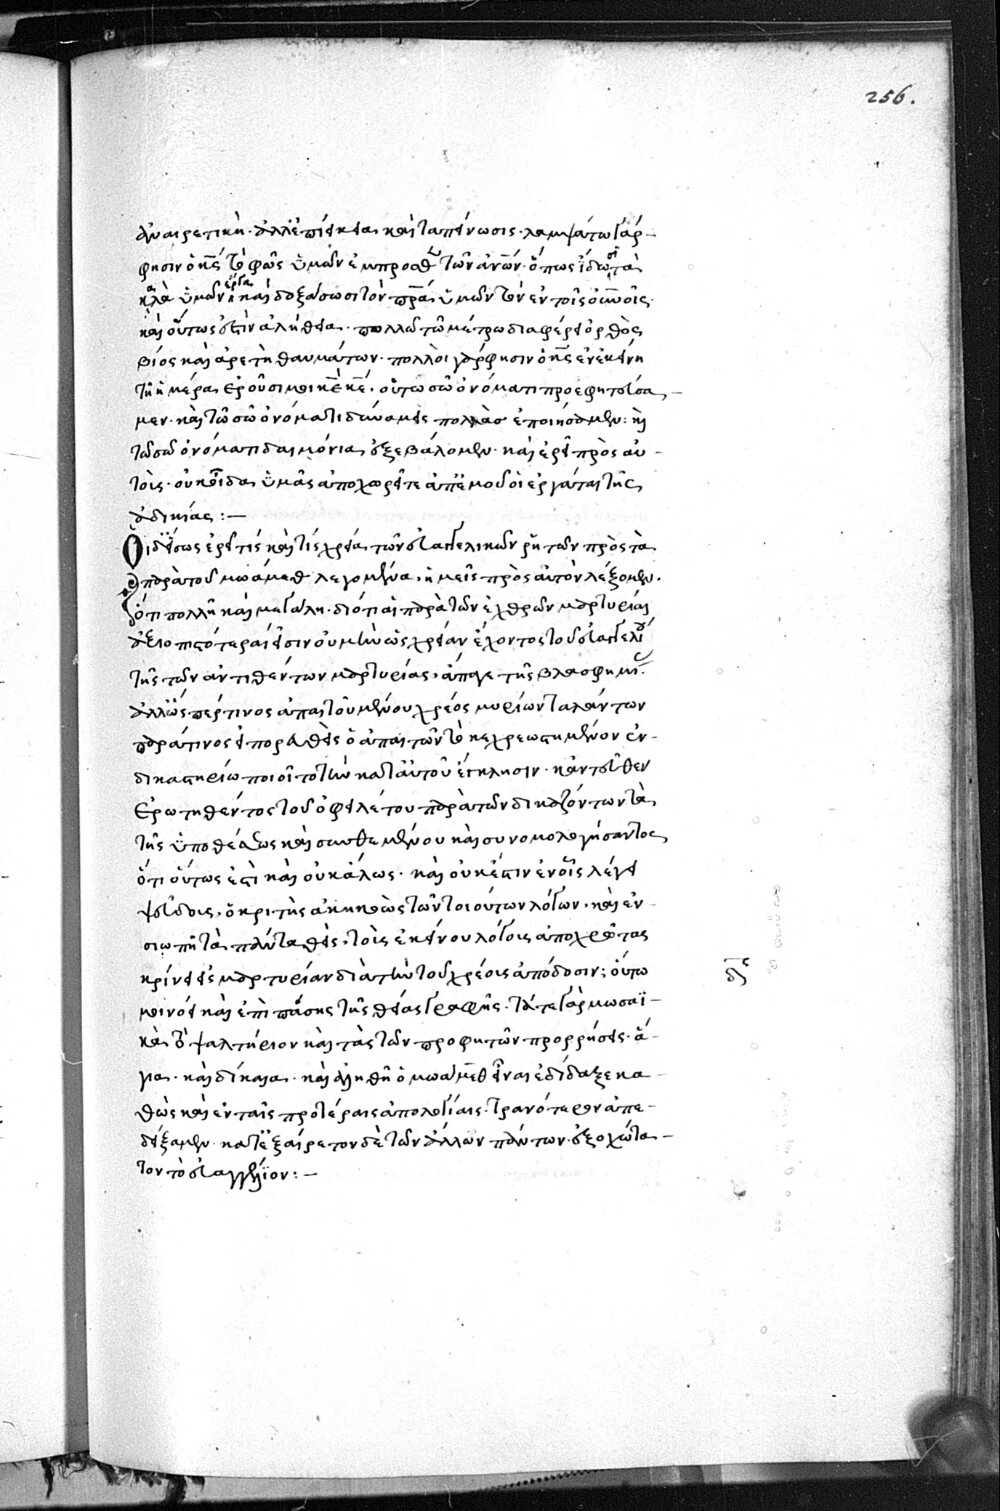 256.
ἀναιρετικὴ. ἀλλ' ἐπιείκεια καὶ ταπείνωσις. λαμψάτω γάρ
φησιν ὁ κ̅ς̅ τὸ φῶς ὑμῶν ἔμπροσθεν τῶν ἀν̅ων̅. ὅπως ἴδωσι τὰ
καλὰ ὑμῶν ἔργα καὶ δοξάσωσι τὸν π̅ρ̅α̅ ὑμῶν τὸν ἐν τοῖς οὐ̅νοῖς.
καὶ οὕτως ἐστὶν ἀλήθεια. πολλῶ τῶ μέτρω διαφέρει ὀρθὸς
βίος καὶ ἀρετὴ θαυμάτων. πολλοὶ γάρ φησιν ὁ κ̅ς̅ ἐν ἐκείνη
τῆ ἡμέρα ἐροῦσι μοι κ̅ε̅ κ̅ε̅. οὐ τῶ σῶ ὀνόματι προεφητεύσα
μεν. καὶ τῶ σῶ ὀνόματι δυνάμεις πολλὰς ἐποιήσαμεν: καὶ
τῶ σῶ ὀνόματι δαιμόνια ἐξεβάλομεν. καὶ ἐρεῖ πρὸς αὐ
τοὺς. οὐκ οἶδα ὑμᾶς ἀποχωρεῖτε ἀπ' ἐμοῦ οἱ ἐργάται τῆς
ἀδικίας: —
Εἰ δ' ἴσως ἐρεῖ τίς καὶ τίς χρεία τῶν εὐαγγελικῶν ῥητῶν πρὸς τὰ
παρὰ τοῦ μωάμεθ λεγομένα, ἡμεῖς πρὸς αὐτὸν λέξομεν.
ὅτι πολλὴ καὶ μεγάλη. διότι αἱ παρὰ τῶν ἐχθρῶν μαρτυρίαι
ἀξιοπιστότεραί εἰσιν οὐ μὴν ὡς χρείαν ἔχοντος τοῦ εὐαγγελίου
τῆς τῶν ἀντιθέντων μαρτυρίας, ἄπαγε τῆς βλασφημίας.
ἀλλ' ὥσπερ τινος ἀπαιτουμένου χρέος μυρίων ταλάντων
παρά τινος εἰ πορευθεὶς ὁ ἀπαιτῶν τὸ κεχρεωστημένον ἐν
δικαστηρίω ποιοῖτο τὴν κατ' αὐτοῦ ἔγκλησιν. κἀντεῦθεν
ἐρωτηθέντος τοῦ ὀφειλέτου παρὰ τῶν δικαζόντων τὰ
τῆς ὑποθέσεως καὶ συνθεμένου καὶ συνομολογήσαντος
ὅτι οὕτως ἐστὶ καὶ οὐκ ἄλλως. καὶ οὐκ ἔστιν ἐν οἷς λέγει
ψεῦδος, ὁ κριτὴς ἀκηκοὼς τῶν τοιούτων λόγων, καὶ ἐν
σιωπῆ τὰ πάντα θεὶς, τοῖς ἐκείνου λόγοις ἀποχρώντας
κρίνει εἰς μαρτυρίαν διὰ τὴν τοῦ χρέους ἀπόδοσιν: οὕτω
μοι νόει καὶ ἐπὶ πάσης τῆς θείας γραφῆς. τά τε γὰρ μωσαϊ
κὰ τὸ ψαλτήριον καὶ τὰς τῶν προφητῶν προρρήσεις. ἅ
για. καὶ δίκαια. καὶ ἀληθῆ ὁ μωάμεθ εἶναι ἐδίδαξε κα
θὼς καὶ ἐν ταῖς προτέραις ἀπολογίαις. τρανότερον ἀπε
δείξαμεν. κατ' ἐξαίρετον δὲ τῶν ἄλλων πάντων. ἐξοχώτα
τον τὸ εὐαγγέλιον: —